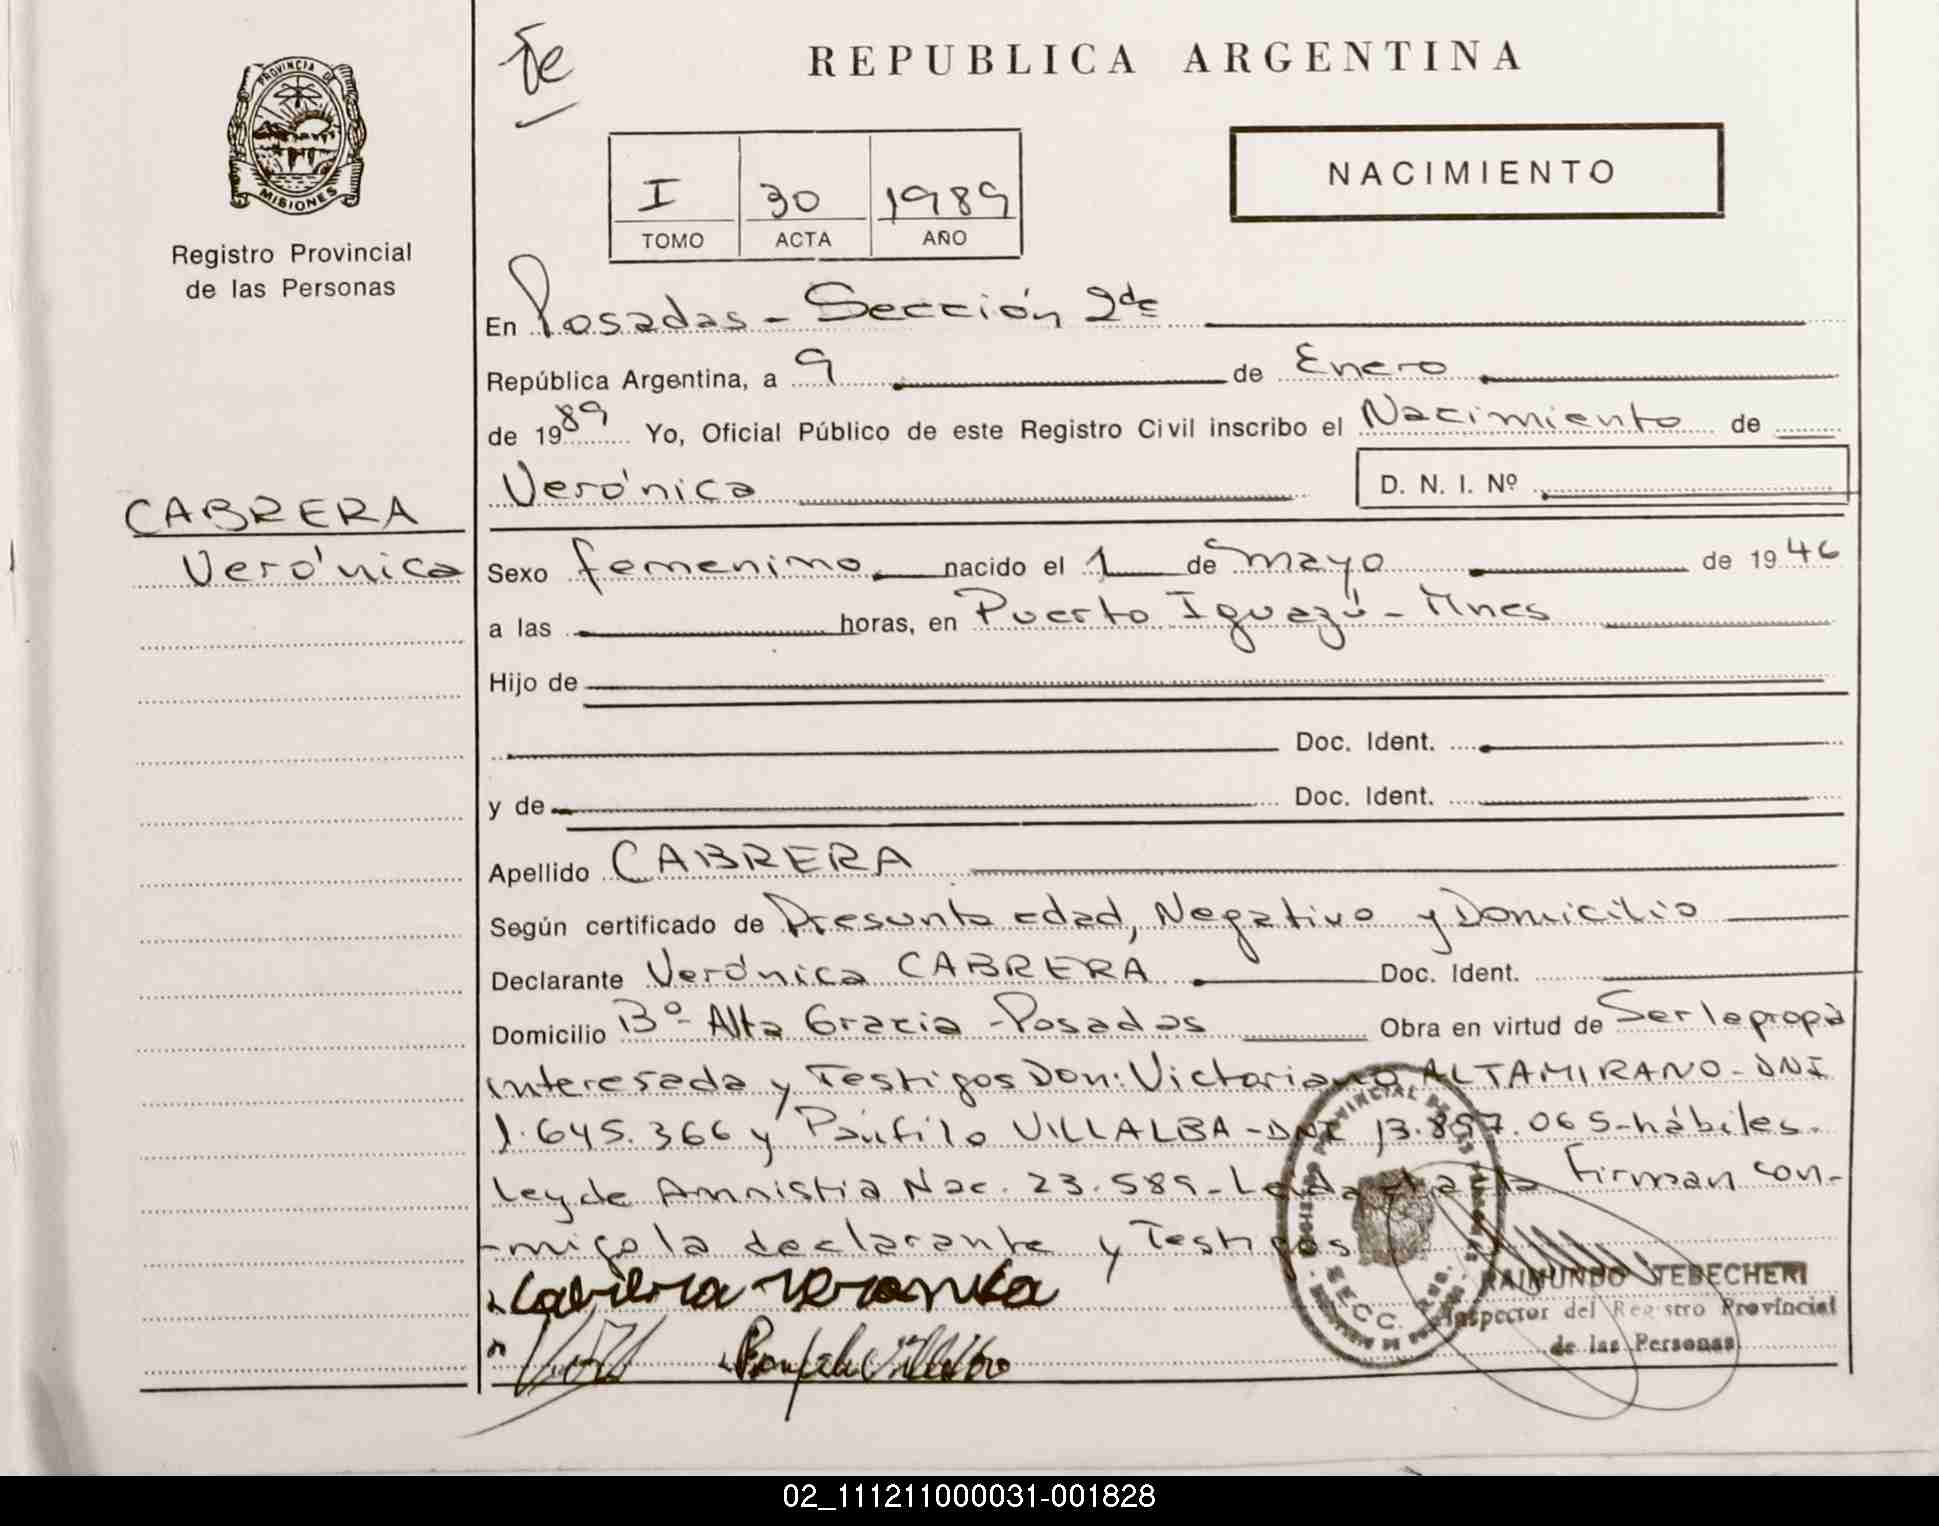 Te
REPUBLICA ARGENTINA
PROVINCIA DE
MISIONES
I 30 1989
TOMO ACTA AÑO
NACIMIENTO
Registro Provincial
de las Personas
En Posadas - Sección 2da
República Argentina, a 9 de Enero
de 1989 Yo, Oficial Público de este Registro Civil inscribo el Nacimiento de
Verónica D. N. I. Nº
CABRERA
Verónica
Sexo femenino nacido el 1 de mayo de 1946
a las horas, en Puerto Iguazú - Mnes
Hijo de
Doc. Ident.
y de Doc. Ident.
Apellido CABRERA
Según certificado de Presunta edad, Negativo y Domicilio
Declarante Verónica CABRERA Doc. Ident.
Domicilio Bº Alta Gracia - Posadas Obra en virtud de Ser la propia
interesada y Testigos Don: Victoriano ALTAMIRANO - DNI
1.645.366 y Pánfilo VILLALBA - DNI 13.897.065 - hábiles.
Ley de Amnistia Nac. 23.589 - Leída el acta Firman con-
-migo la declarante y Testigos
Cabrera Veronica
RAIMUNDO TEBECHERI
Inspector del Registro Provincial
de las Personas
REGISTRO PROVINCIAL DE LAS PERSONAS
SECC.
02_111211000031-001828